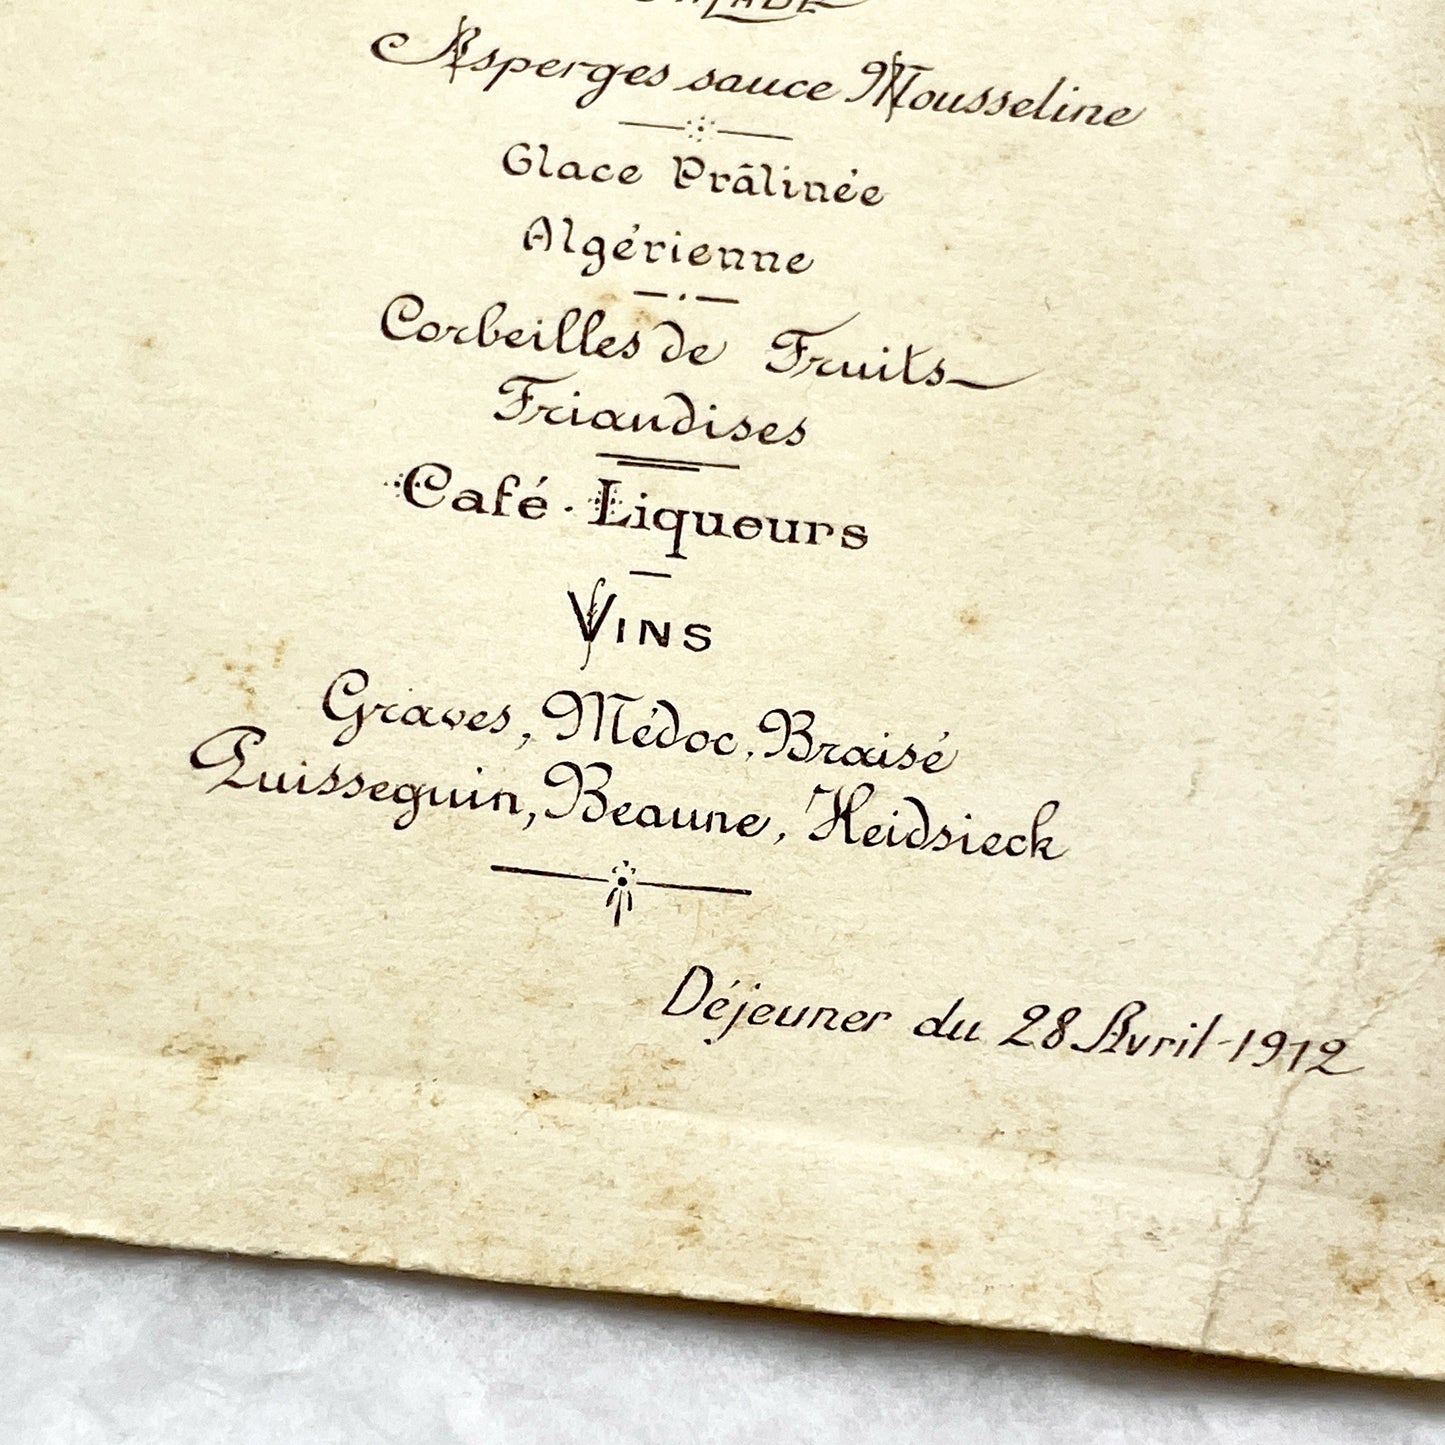 Salade
Asperges sauce Mousseline
Glace Prâlinée
Algérienne
Corbeilles de Fruits
Friandises
Café · Liqueurs
Vins
Graves, Médoc, Braisé
Puisseguin, Beaune, Heidsieck
Déjeuner du 28 Avril-1912